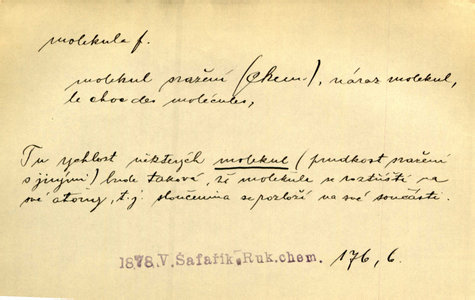 molekula f.
molekul sražení (Chem.), náraz molekul,
le choc des molécules,
Tu rychlost některých molekul (prudkost sražení
s jinými) bude taková, že molekula se roztříští na
své atomy, t.j. sloučenina se rozloží na své součásti.
1878.V.Šafařík-Ruk.chem. 176, 6.